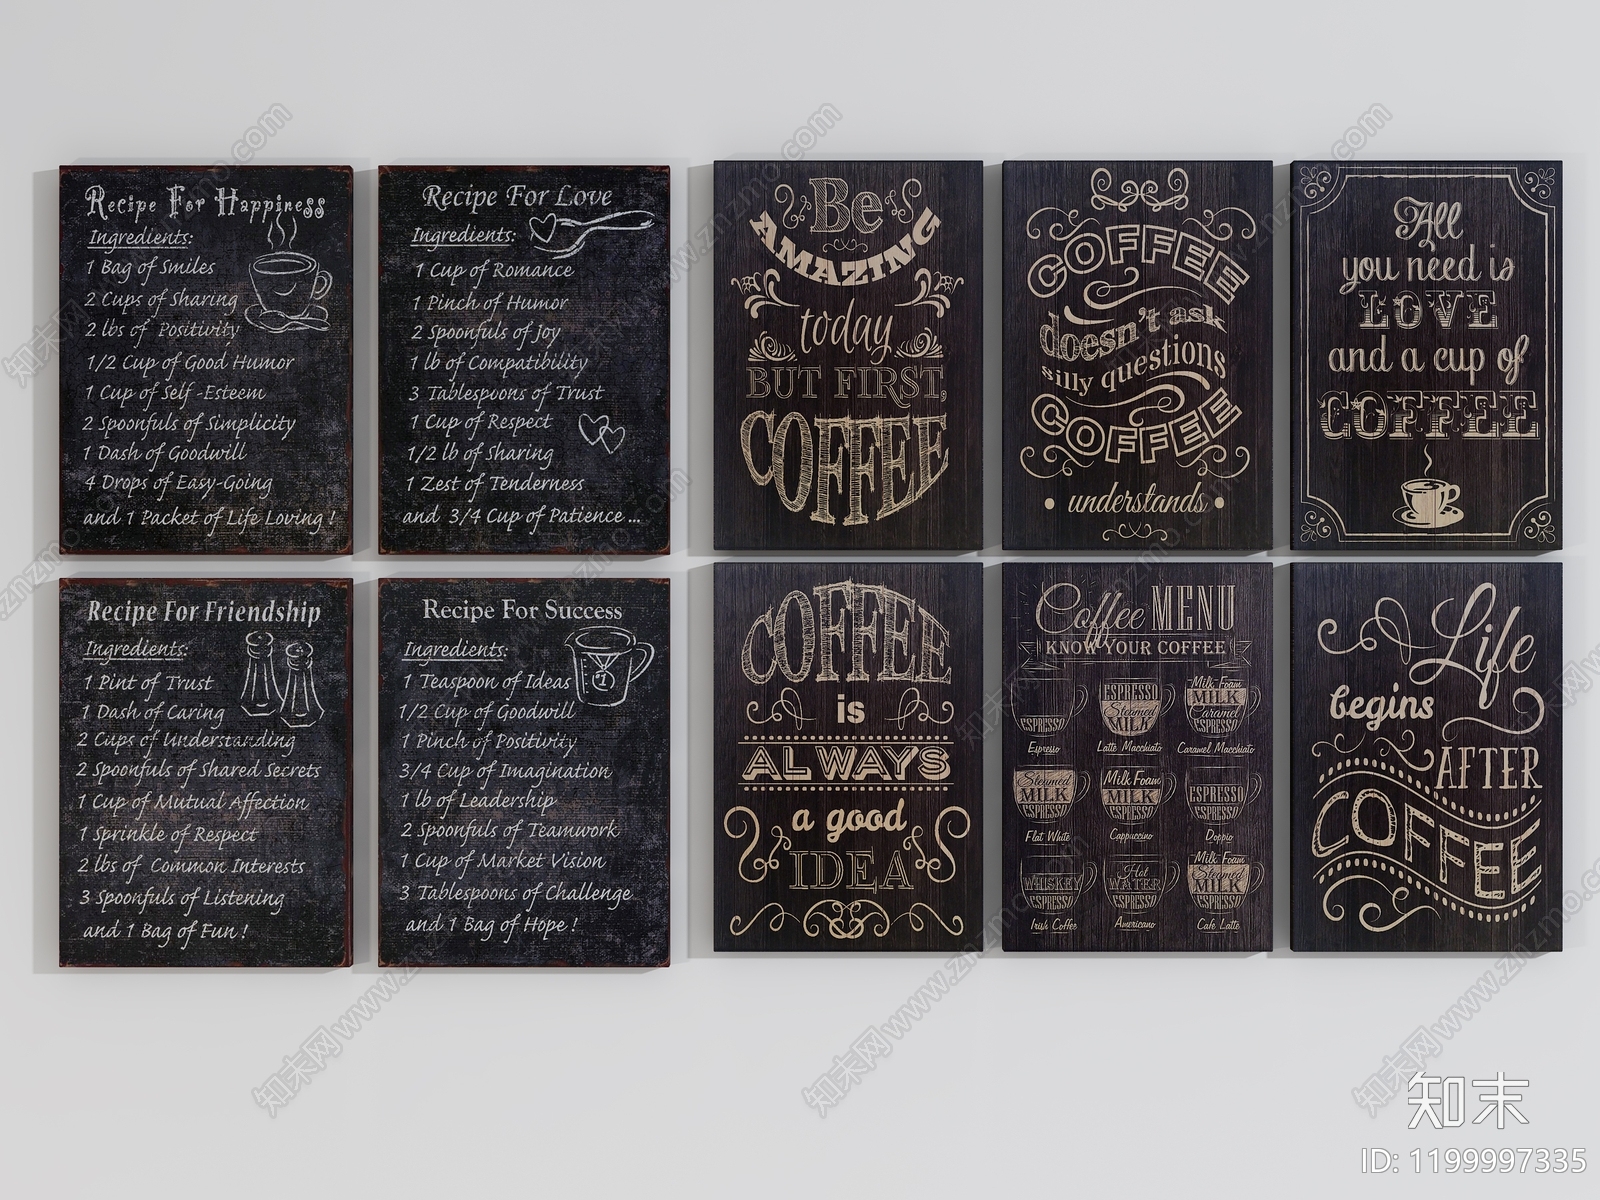 Recipe For Happiness
Ingredients:
1 Bag of Smiles
2 Cups of Sharing
2 lbs of Positivity
1/2 Cup of Good Humor
1 Cup of Self-Esteem
2 Spoonfuls of Simplicity
1 Dash of Goodwill
4 Drops of Easy-Going
and 1 Packet of Life Loving !
Recipe For Love
Ingredients:
1 Cup of Romance
1 Pinch of Humor
2 Spoonfuls of Joy
1 lb of Compatibility
3 Tablespoons of Trust
1 Cup of Respect
1/2 lb of Sharing
1 Zest of Tenderness
and 3/4 Cup of Patience ...
Be
AMAZING
today
BUT FIRST,
COFFEE
COFFEE
doesn't ask
silly questions
COFFEE
• understands •
All
you need is
LOVE
and a cup of
COFFEE
Recipe For Friendship
Ingredients:
1 Pint of Trust
1 Dash of Caring
2 Cups of Understanding
2 Spoonfuls of Shared Secrets
1 Cup of Mutual Affection
1 Sprinkle of Respect
2 lbs of Common Interests
3 Spoonfuls of Listening
and 1 Bag of Fun !
Recipe For Success
Ingredients:
#1
1 Teaspoon of Ideas
1/2 Cup of Goodwill
1 Pinch of Positivity
3/4 Cup of Imagination
1 lb of Leadership
2 Spoonfuls of Teamwork
1 Cup of Market Vision
3 Tablespoons of Challenge
and 1 Bag of Hope !
COFFEE
is
ALWAYS
a good
IDEA
Coffee MENU
KNOW YOUR COFFEE
ESPRESSO
Espresso
ESPRESSO
Steamed
MILK
Latte Macchiato
Milk Foam
MILK
Caramel
ESPRESSO
Caramel Macchiato
Steamed
MILK
ESPRESSO
Flat White
Milk Foam
MILK
ESPRESSO
Cappuccino
ESPRESSO
ESPRESSO
Doppio
WHISKEY
ESPRESSO
Irish Coffee
Hot
WATER
ESPRESSO
Americano
Milk Foam
Steamed
MILK
ESPRESSO
Cafe Latte
Life
begins
AFTER
COFFEE
知末网www.znzmo.com
知末
ID: 1199997335